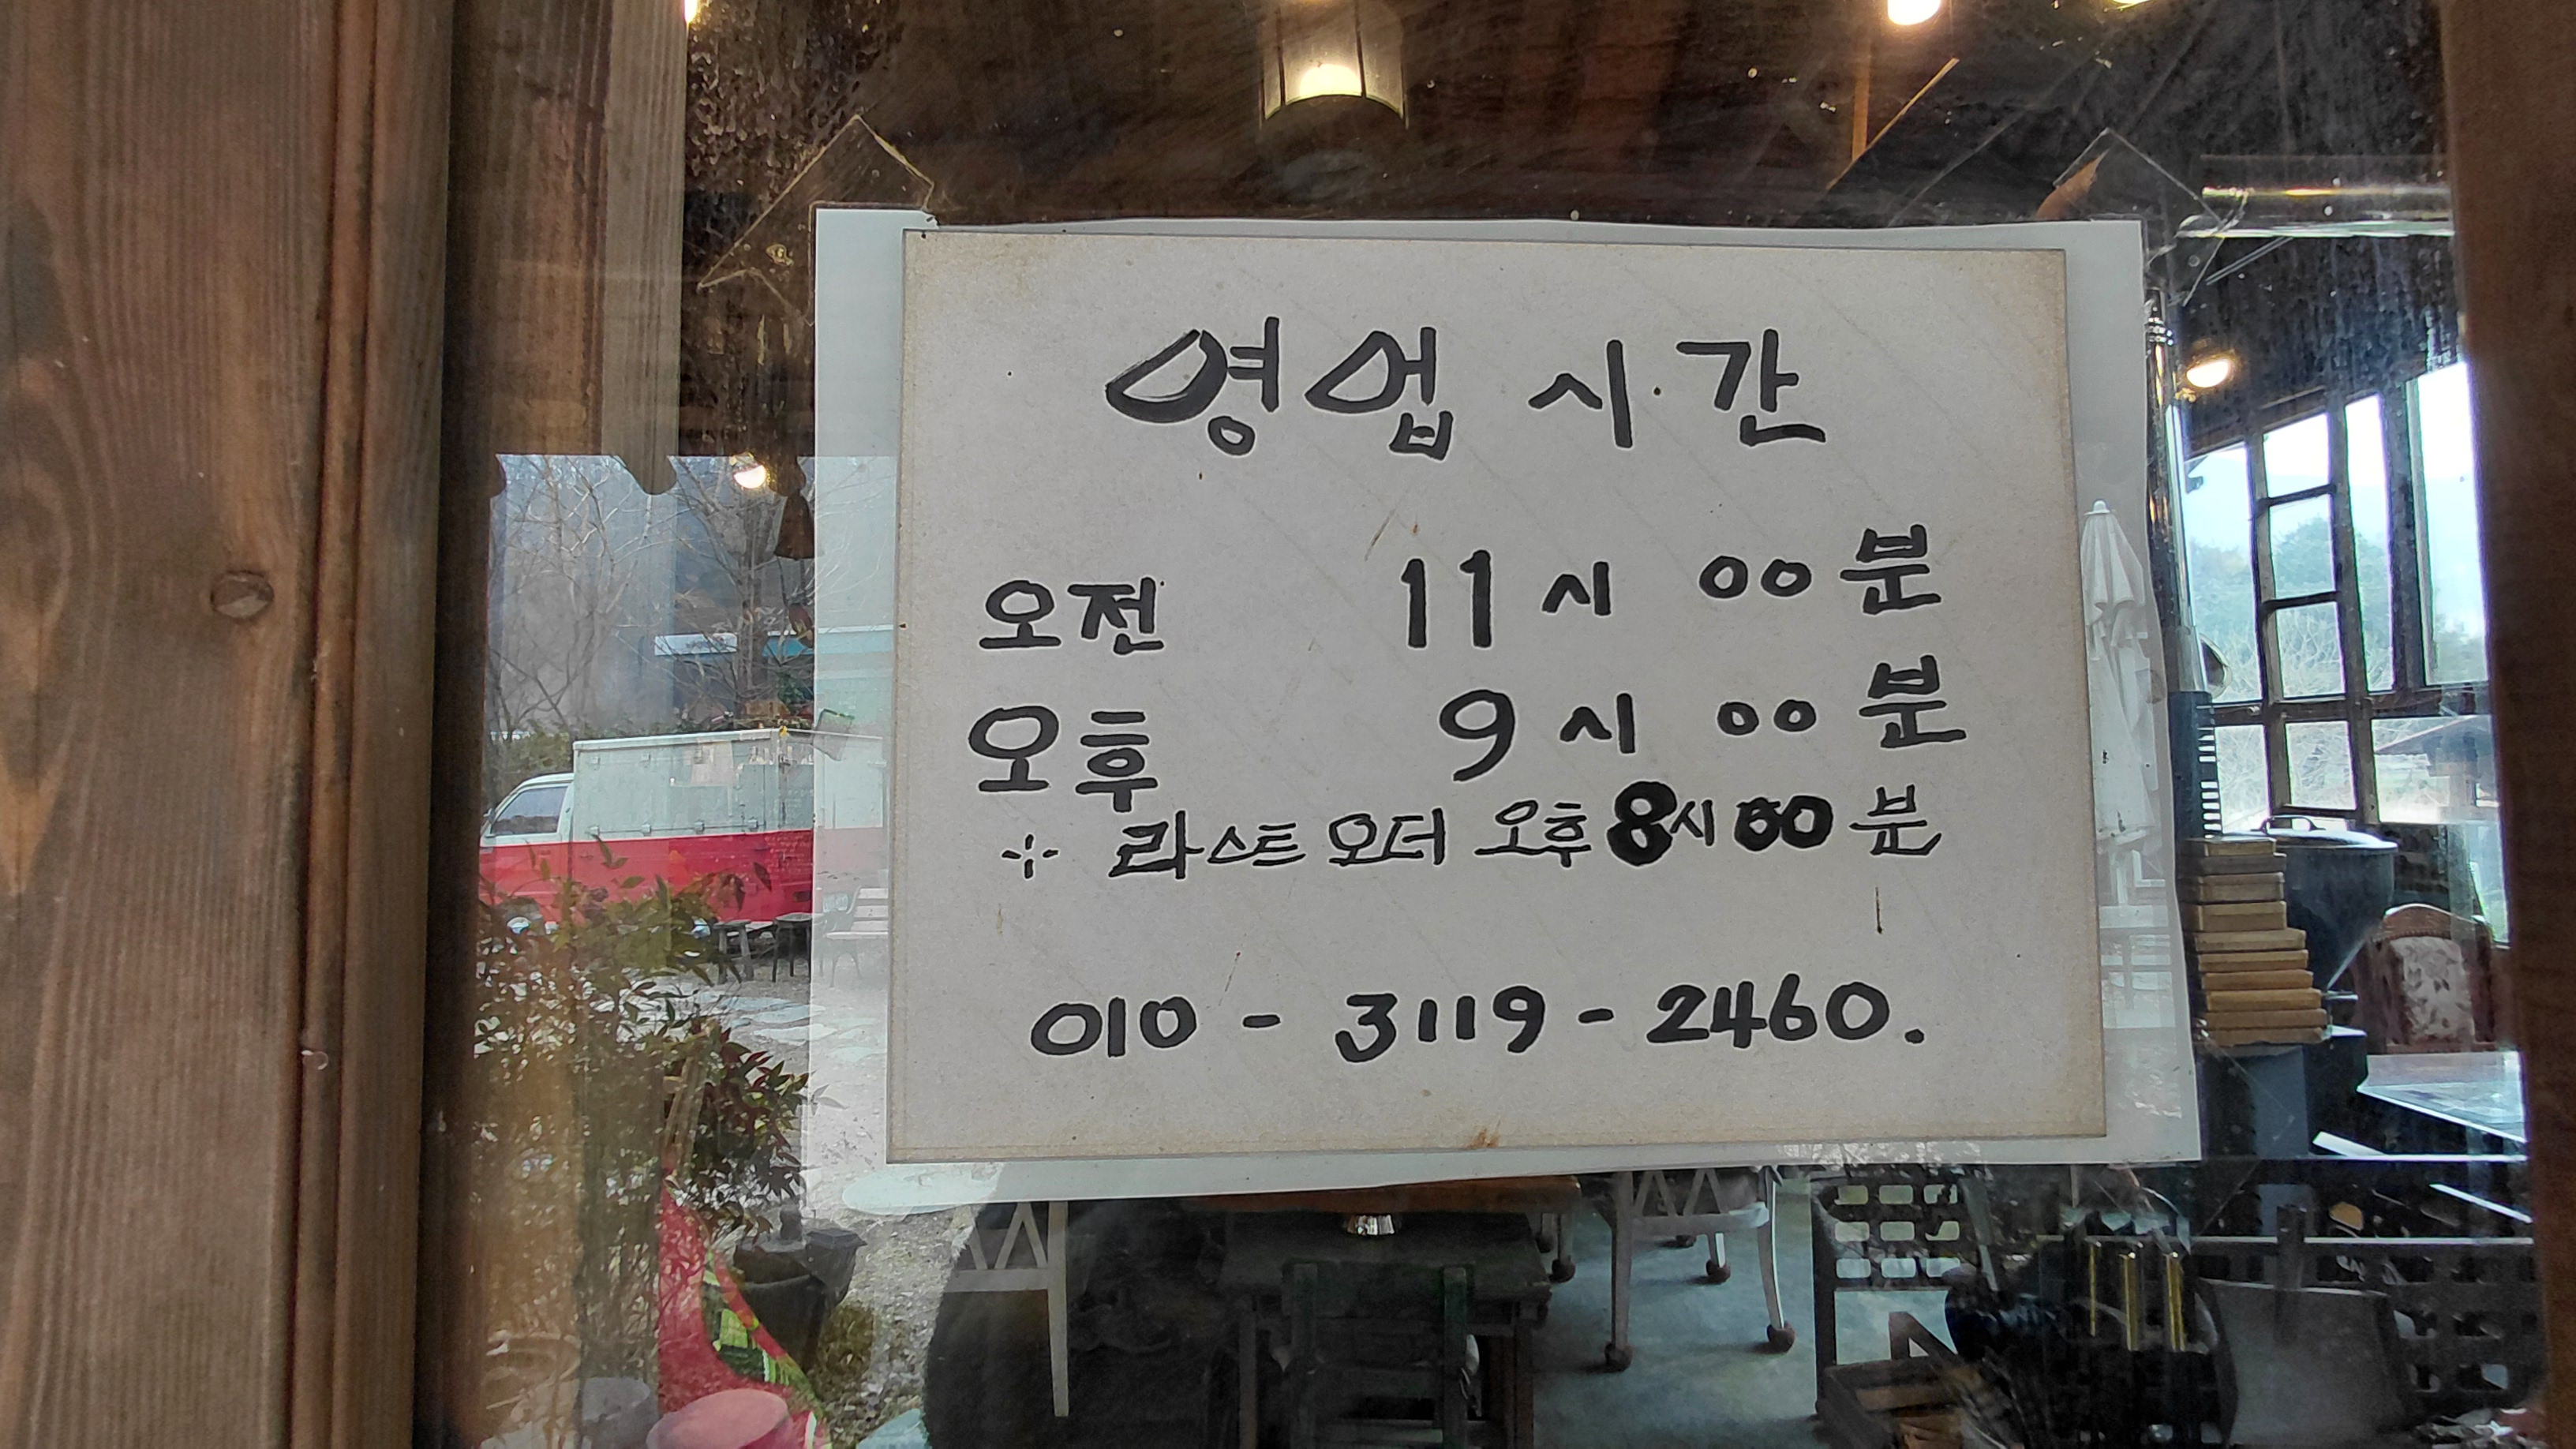 영업시간
오전 11시 00분
오후 9시 00분
※ 라스트 오더 오후 8시 00분
010 - 3119 - 2460.